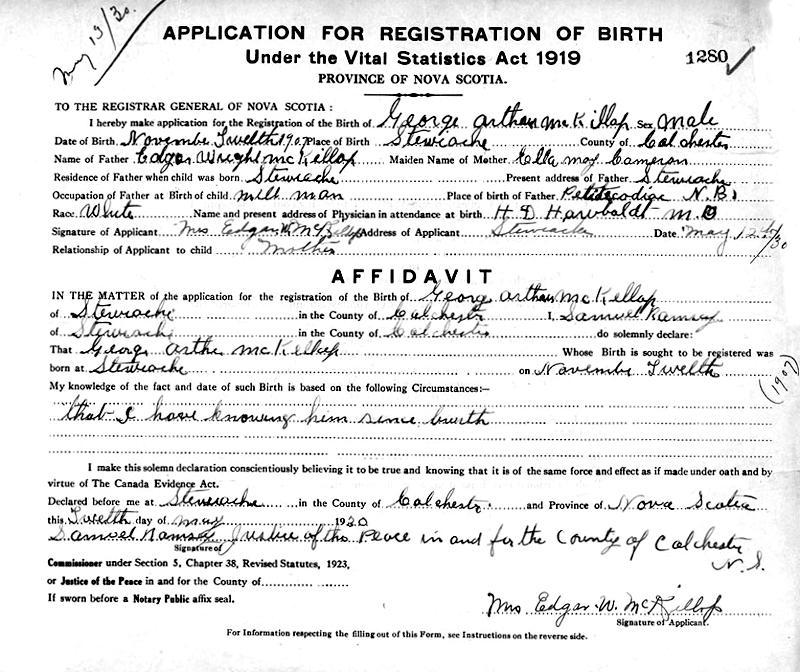 May 13/30.
APPLICATION FOR REGISTRATION OF BIRTH
Under the Vital Statistics Act 1919
1280
PROVINCE OF NOVA SCOTIA.
TO THE REGISTRAR GENERAL OF NOVA SCOTIA :
I hereby make application for the Registration of the Birth of George Arthur McKillop Sex Male
Date of Birth Novembe Twelth 1907 Place of Birth Stewiacke County of Colchester
Name of Father Edgar Wright McKillop Maiden Name of Mother Ella May Cameron
Residence of Father when child was born Stewiacke Present address of Father Stewiacke
Occupation of Father at Birth of child mill man Place of birth of Father Petitcodiac N.B.
Race White Name and present address of Physician in attendance at birth H. D. M.D
Signature of Applicant Mrs Edgar W McKillop Address of Applicant Stewiacke Date May 12th/30
Relationship of Applicant to child Mother
AFFIDAVIT
IN THE MATTER of the application for the registration of the Birth of George Arthur McKellop
of Stewiacke in the County of Colchester I, Samuel Ramsay
of Stewiacke in the County of Colchester do solemnly declare:
That George Arthe McKellop Whose Birth is sought to be registered was
born at Stewiacke on Novembe Twelth
(1907)
My knowledge of the fact and date of such Birth is based on the following Circumstances:—
that I have knowing him since burth
I make this solemn declaration conscientiously believing it to be true and knowing that it is of the same force and effect as if made under oath and by
virtue of The Canada Evidence Act.
Declared before me at Stewiacke in the County of Colchester and Province of Nova Scotia
this Twelth day of May 1930
Samuel Ramsay Justice of the Peace in and for the County of Colchester
N.S.
Signature of
Commissioner under Section 5, Chapter 38, Revised Statutes, 1923,
or Justice of the Peace in and for the County of
If sworn before a Notary Public affix seal.
Mrs Edgar W. McKillop
Signature of Applicant.
For Information respecting the filling out of this Form, see Instructions on the reverse side.